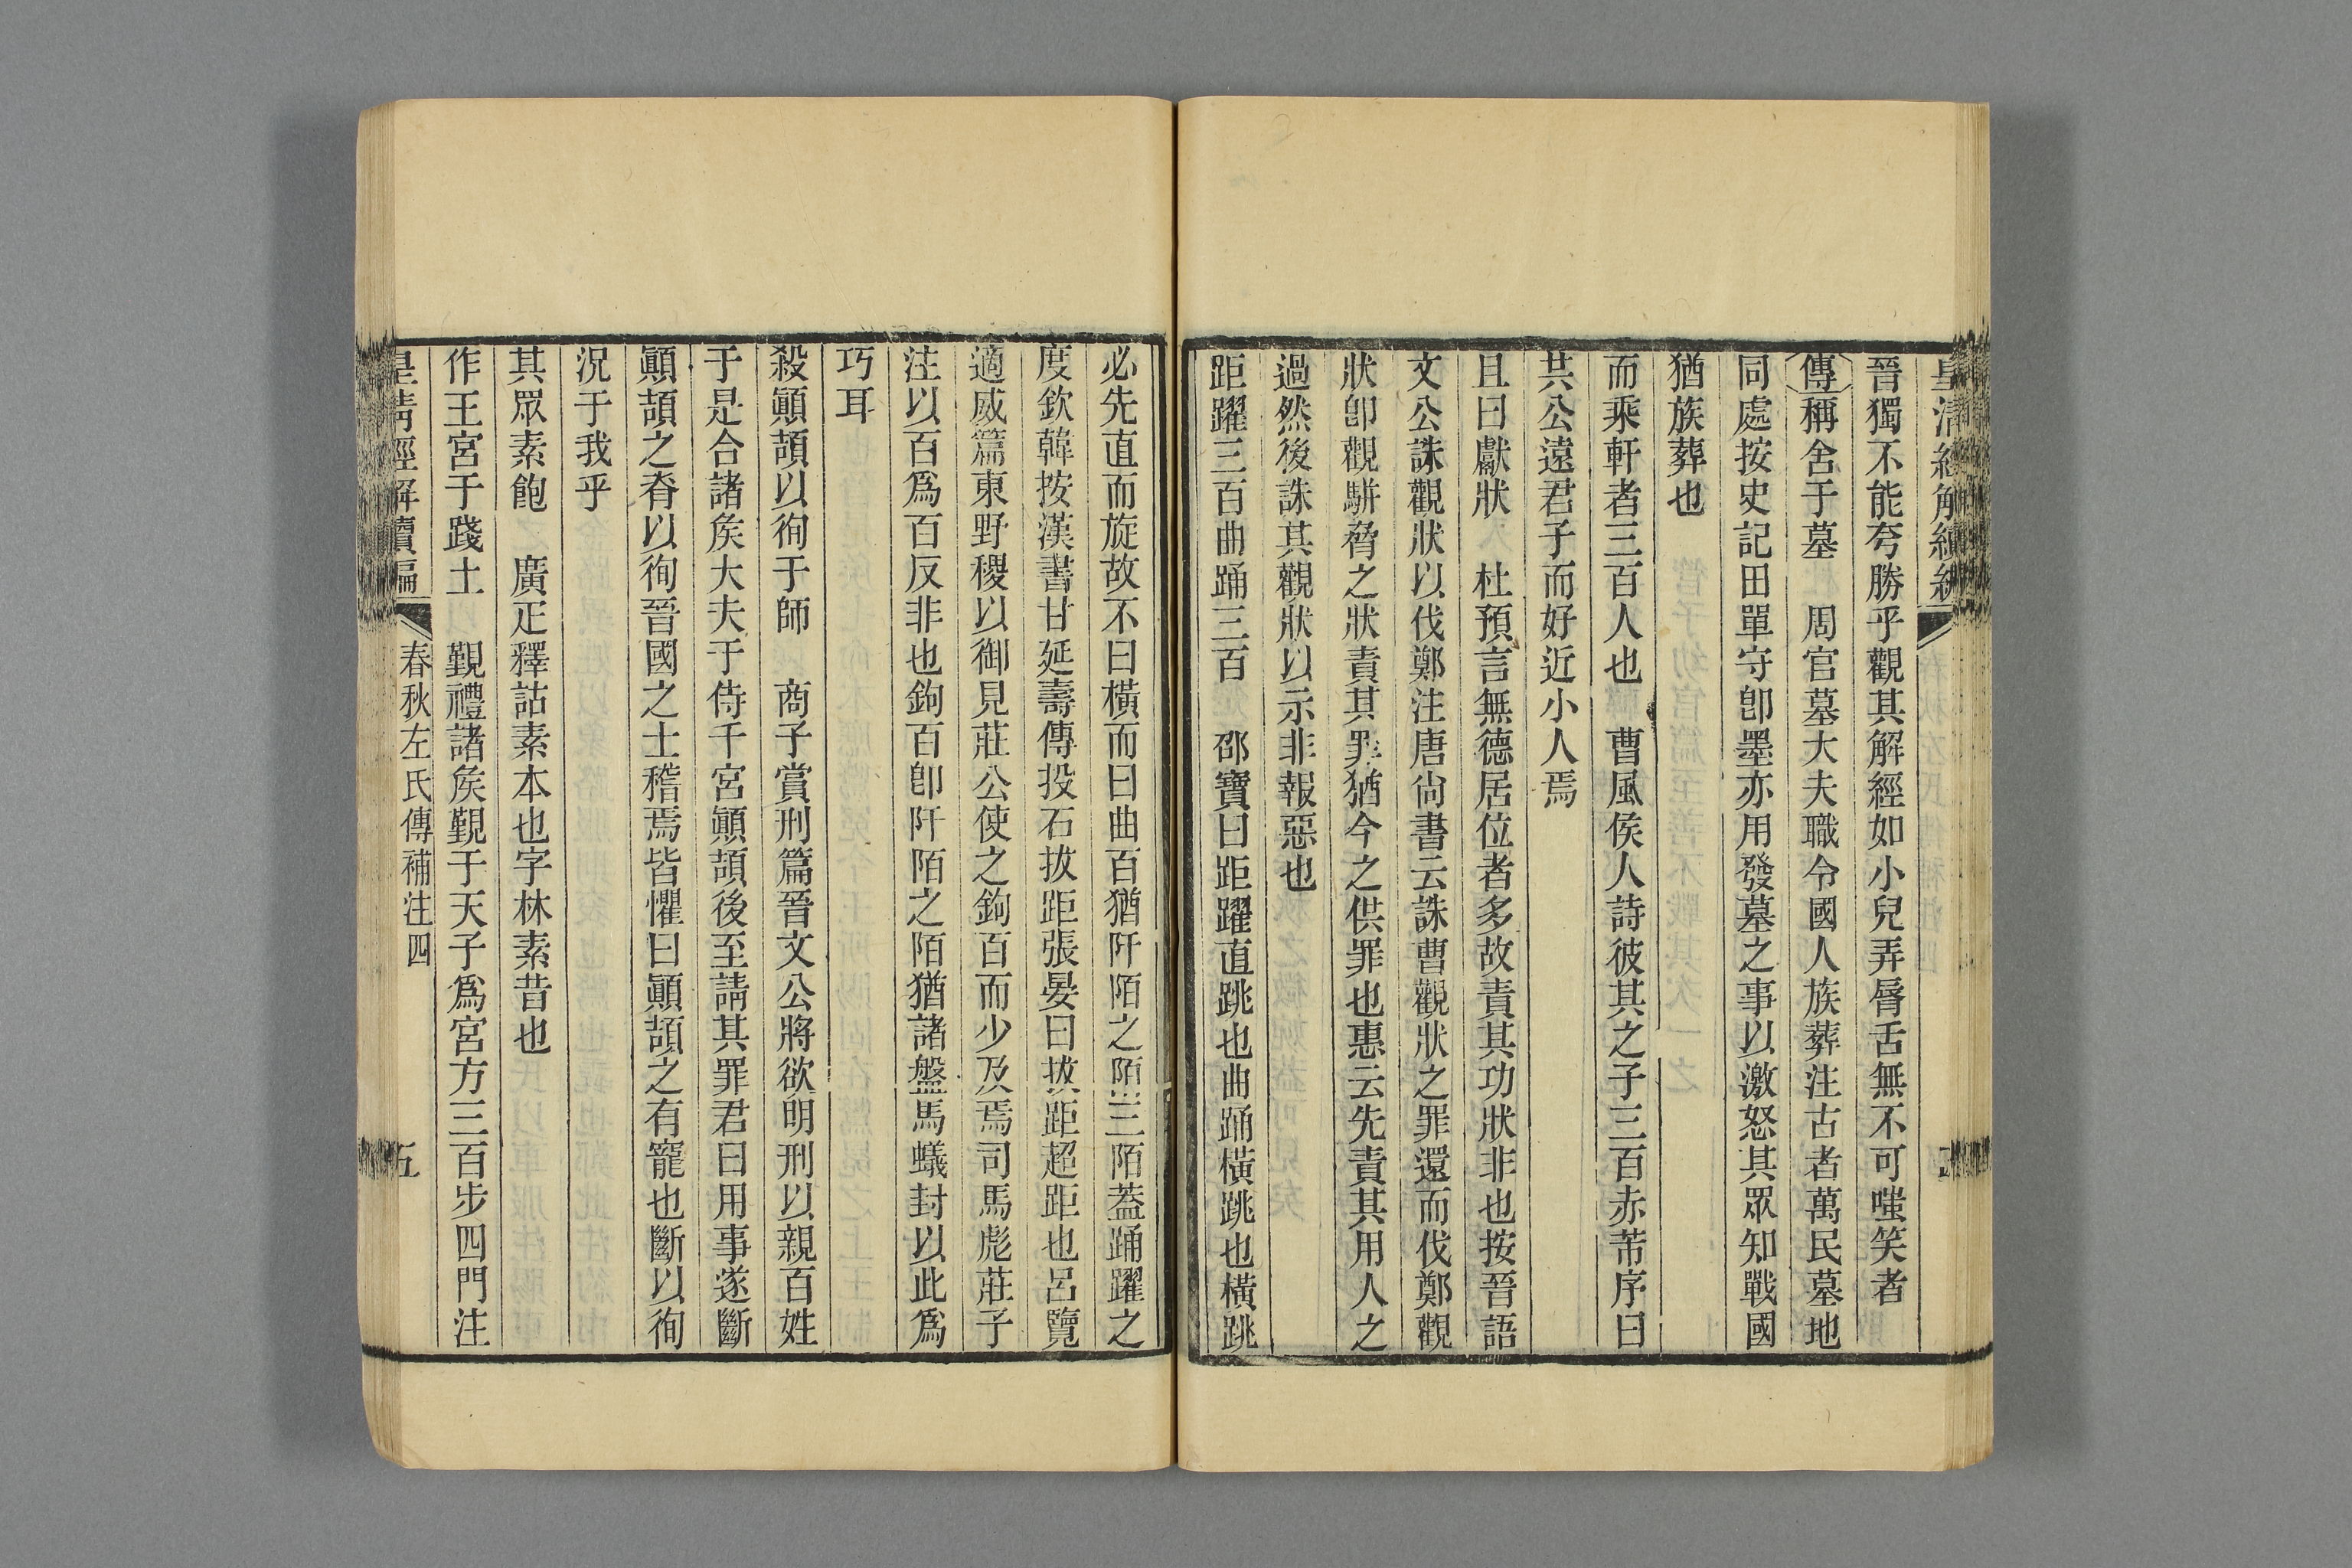 晉獨不能夸勝乎觀其解經如小兒弄脣舌無不可嗤笑者
傳稱舍于墓　周官墓大夫職令國人族葬注古者萬民墓地
同處按史記田單守卽墨亦用發墓之事以激怒其眾知戰國
猶族葬也
而乘軒者三百人也　曹風侯人詩彼其之子三百赤芾序曰
共公遠君子而好近小人焉
且曰獻狀　杜預言無德居位者多故責其功狀非也按晉語
文公誅觀狀以伐鄭注唐尙書云誅曹觀狀之罪還而伐鄭觀
狀卽觀駢脅之狀責其罪猶今之供罪也惠云先責其用人之
過然後誅其觀狀以示非報惡也
距躍三百曲踊三百　邵寶曰距躍直跳也曲踊橫跳也橫跳
必先直而旋故不曰橫而曰曲百猶阡陌之陌三陌葢踊躍之
度欽韓按漢書甘延壽傳投石拔距張晏曰拔距超距也呂覽
適威篇東野稷以御見莊公使之鉤百而少及焉司馬彪莊子
注以百爲百反非也鉤百卽阡陌之陌猶諸盤馬蟻封以此爲
巧耳
殺顚頡以徇于師　商子賞刑篇晉文公將欲明刑以親百姓
于是合諸矦大夫于侍千宮顚頡後至請其罪君曰用事遂斷
顚頡之脊以徇晉國之士稽焉皆懼曰顚頡之有寵也斷以徇
況于我乎
其眾素飽　廣疋釋詁素本也字林素昔也
作王宮于踐土　覲禮諸矦覲于天子爲宮方三百步四門注
皇淸經解續編　春秋左氏傳補注四　五